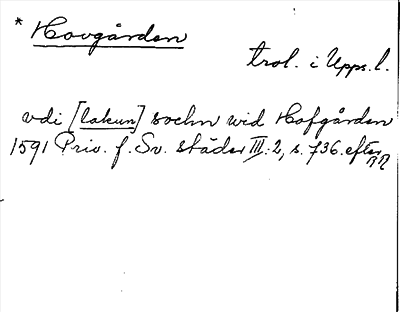 * Hovgården
trol. i Upps. l.
vdi [lakun] sochn wid Hofgården
1591 Priv. f. Sv. städer III:2, s. 736. efter